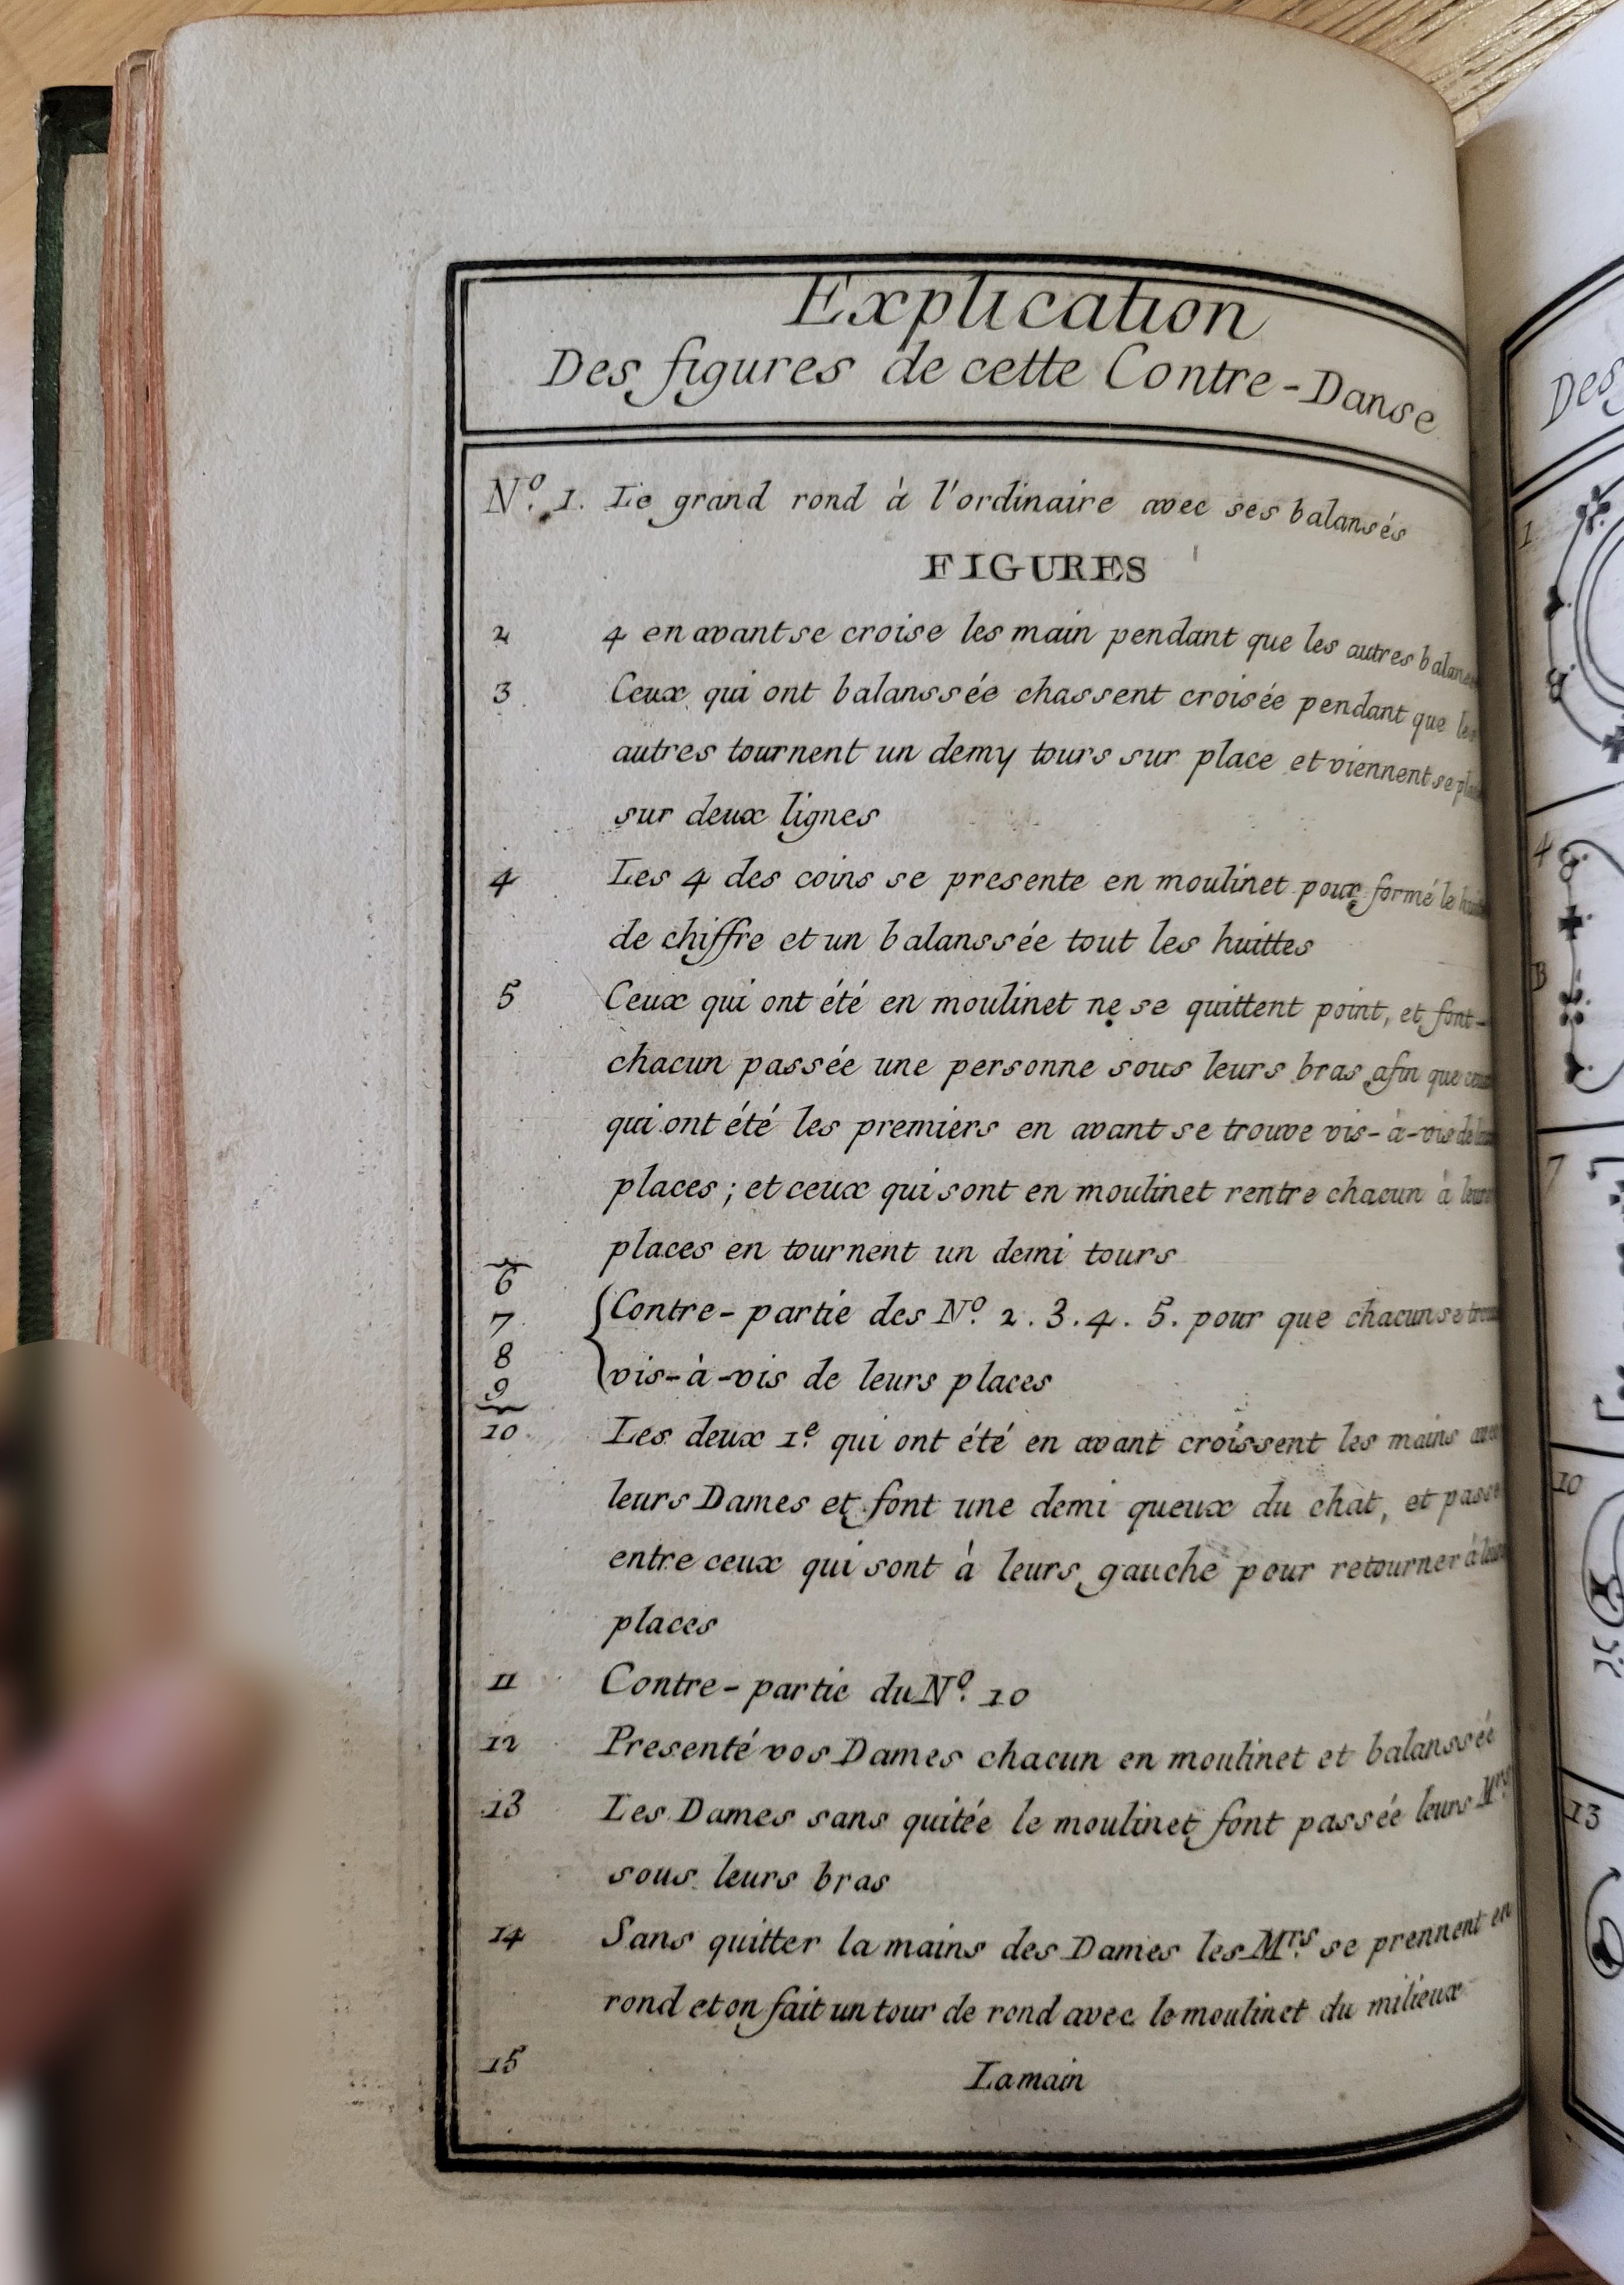 Explication
Des figures de cette Contre-Danse
N.º 1. Le grand rond à l'ordinaire avec ses balansés
FIGURES
2 4 en avant se croise les main pendant que les autres
3 Ceux qui ont balanssée chassent croisée pendant que les
autres tournent un demy tours sur place et viennent se
sur deux lignes
4 Les 4 des coins se presente en moulinet pour formé le
de chiffre et un balanssée tout les huittes
5 Ceux qui ont été en moulinet ne se quittent point, et font-
chacun passée une personne sous leurs bras afin que ceux
qui ont été les premiers en avant se trouve vis-à-vis de
places; et ceux qui sont en moulinet rentre chacun à leurs
places en tournent un demi tours
6
7
8
9
Contre-partie des Nº. 2.3.4.5. pour que chacun se
vis-à-vis de leurs places
10 Les deux 1.e qui ont été en avant croissent les mains avec
leurs Dames et font une demi queux du chat, et passe
entre ceux qui sont à leurs gauche pour retourner à leurs
places
11 Contre-partie du Nº. 10
12 Presenté vos Dames chacun en moulinet et balanssée
13 Les Dames sans quitée le moulinet font passée leurs Mrs
sous leurs bras
14 Sans quitter la mains des Dames les M.rs se prennent en
rond et on fait un tour de rond avec le moulinet du milieux
15 La main
Des
1
4
B
7
10
13